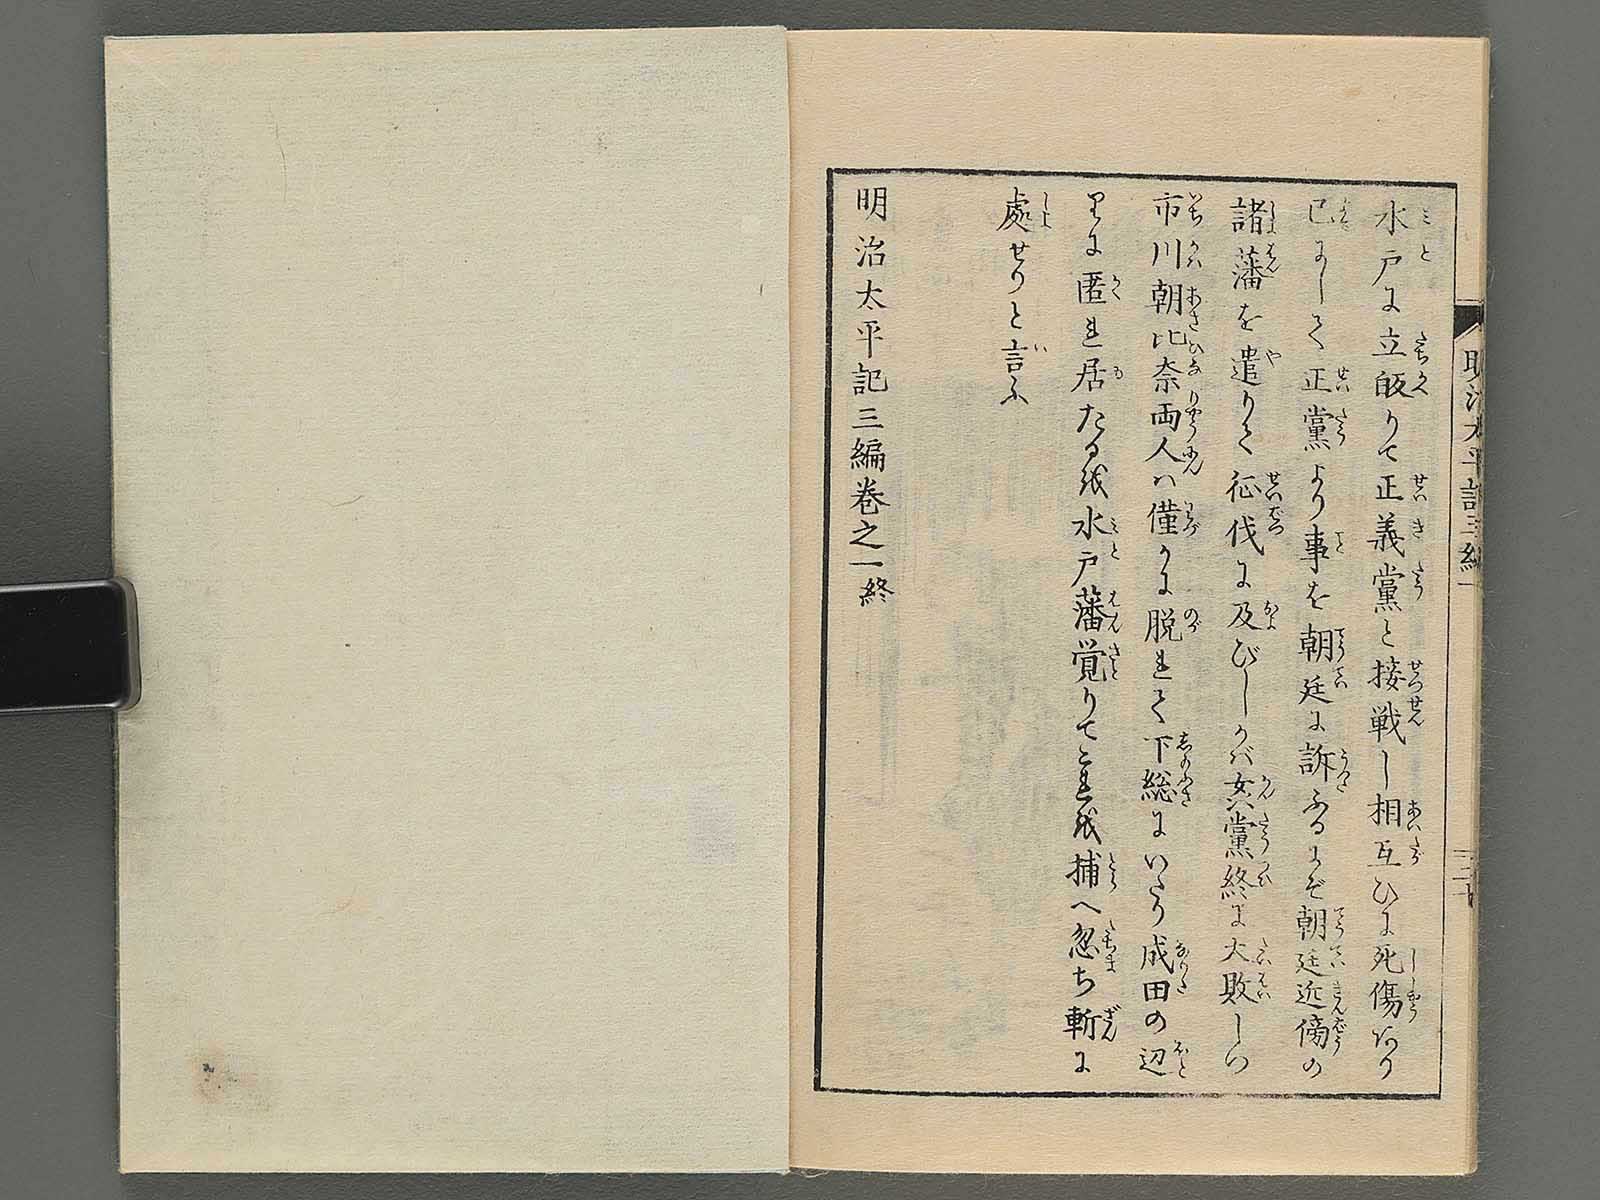 水戸に立皈りて正義黨と接戦し相互ひに死傷あり
已にして正黨より事を朝廷に訴ふるにぞ朝廷近傍の
諸藩を遣りて征伐に及びしかバ奸黨終に大敗しつ
市川朝比奈両人ハ僅かに脱れて下総にいたり成田の辺
りに匿れ居たるを水戸藩覚りてこれを捕へ忽ち斬に
處せりと言ふ
明治太平記三編巻之一終
明治太平記三編一